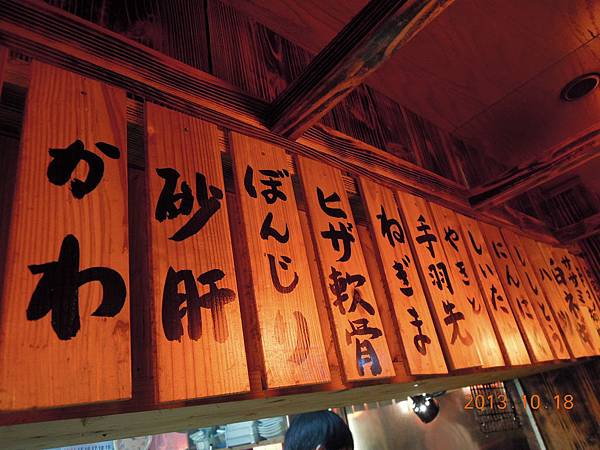 かわ
砂肝
ぼんじり
ヒザ軟骨
ねぎま
手羽先
やきと
しいた
にんに
ししとう
2013.10.18